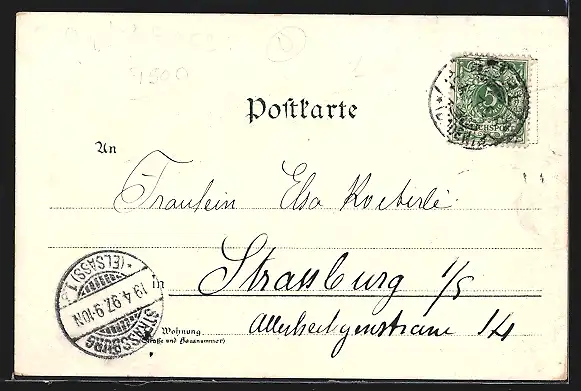 4500
Postkarte
5
REICHSPOST
An
Fräulein Elsa Koeberlé
in Strassburg i/E
Allerheiligenstrasse 14
Wohnung
(Straße und Hausnummer)
STRASSBURG
19.4.97. 9-10N
*(ELSASS) 1